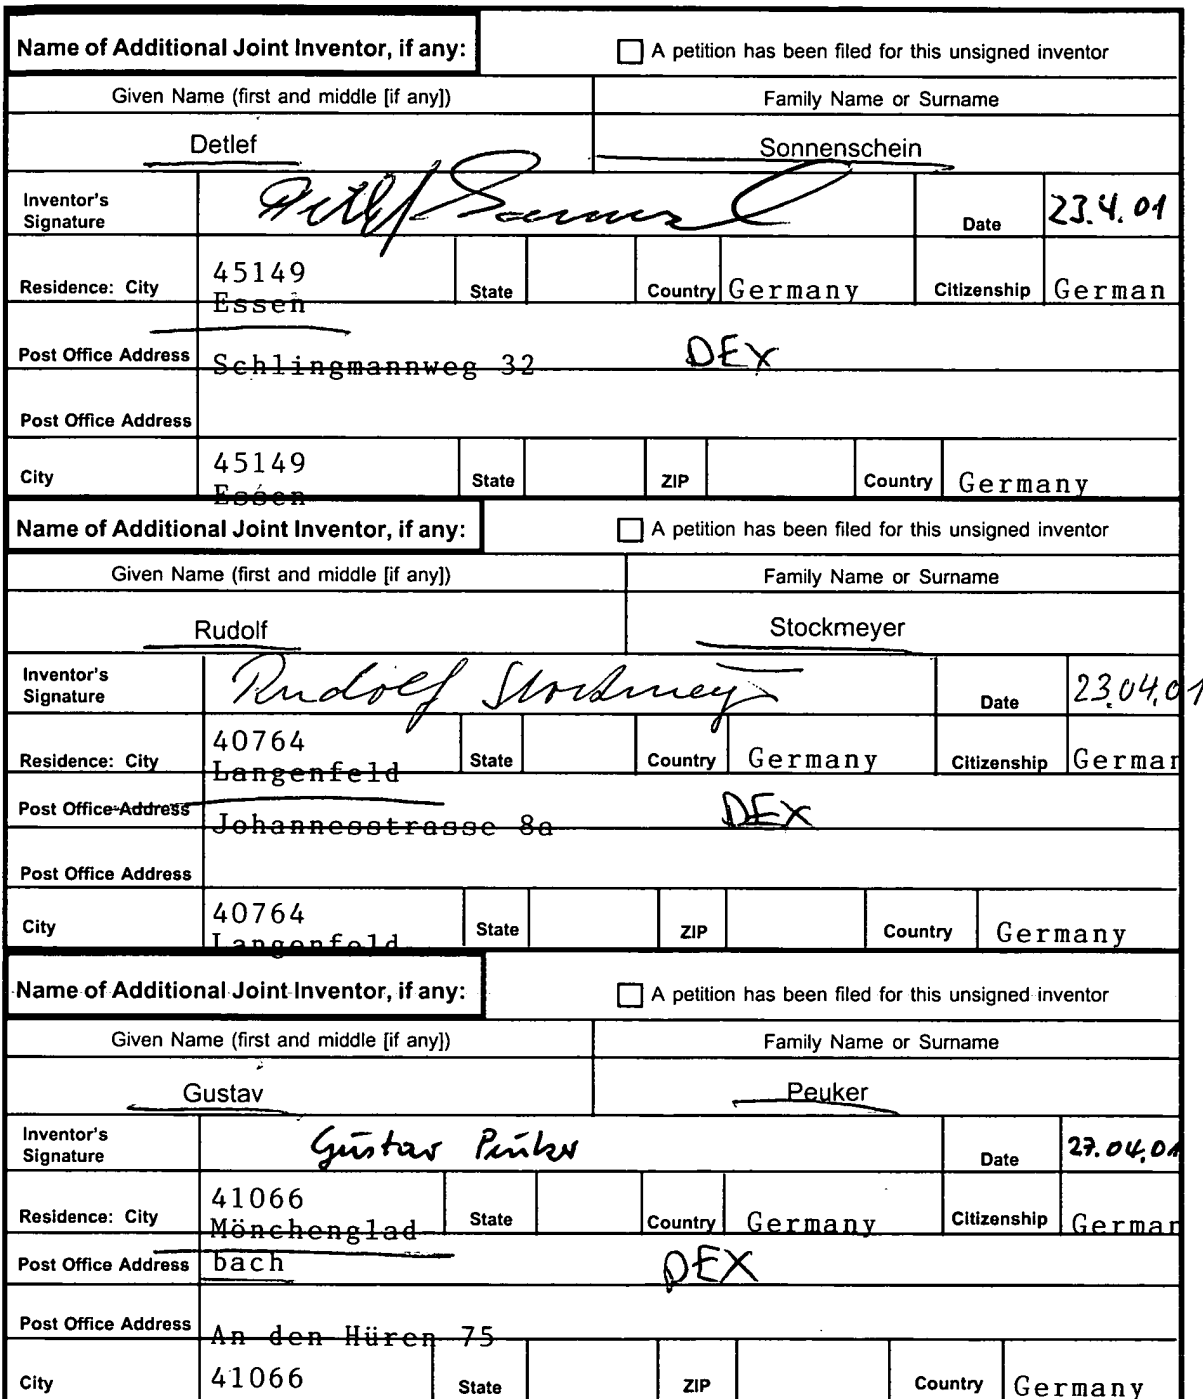 Name of Additional Joint Inventor, if any: A petition has been filed for this unsigned inventor
Given Name (first and middle [if any]) Family Name or Surname
Detlef Sonnenschein
Inventor's
Signature Detlef Date 23.4.01
45149
Residence: City Essen State Country Germany Citizenship German
Post Office Address Schlingmannweg 32 DEX
Post Office Address
45149
City Essen State ZIP Country Germany
Name of Additional Joint Inventor, if any: A petition has been filed for this unsigned inventor
Given Name (first and middle [if any]) Family Name or Surname
Rudolf Stockmeyer
Inventor's
Signature Rudolf Stockmeyer Date 23.04.01
40764
Residence: City Langenfeld State Country Germany Citizenship German
Post Office Address Johannesstrasse 8a DEX
Post Office Address
40764
City Langenfeld State ZIP Country Germany
Name of Additional Joint Inventor, if any: A petition has been filed for this unsigned inventor
Given Name (first and middle [if any]) Family Name or Surname
Gustav Peuker
Inventor's
Signature Gustav Peuker Date 27.04.01
41066
Residence: City Mönchenglad State Country Germany Citizenship German
Post Office Address bach DEX
Post Office Address An den Hüren 75
City 41066 State ZIP Country Germany